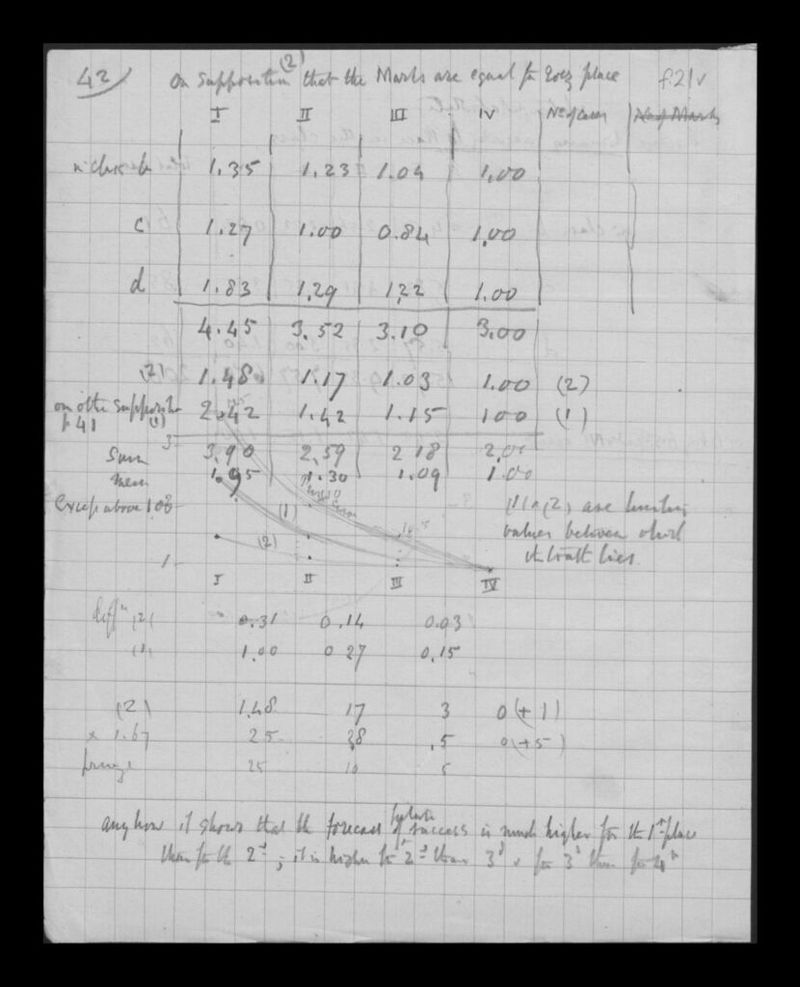 42 On supposition (2) that the Marks are equal for each place f.21v
I II III IV No of cases No of Marks
in class b 1.35 1.23 1.04 1.00
c 1.27 1.00 0.84 1.00
d 1.83 1.29 1.22 1.00
4.45 3.52 3.10 3.00
(2) 1.48 1.17 1.03 1.00 (2)
on other supposition
p 41 (1) 2.42 1.42 1.15 1.00 (1)
3
Sum 3.90 2.59 2.18 2.00
Mean 1.95 1.30 1.09 1.00
Except above 1.00
(1)
(1) & (2) are limiting
values between which
the truth lies.
(2)
1
I II III IV
diff (2) 0.31 0.14 0.03
(1) 1.00 0.27 0.15
(2) 1.48 17 3 0 (+1)
x 1.67 25 28 .5 0 (+5)
25 10 5
any how it shows that the forecast of success is much higher for the 1st place
than for the 2d ; it is higher for 2d than 3d & for 3d than for 4th